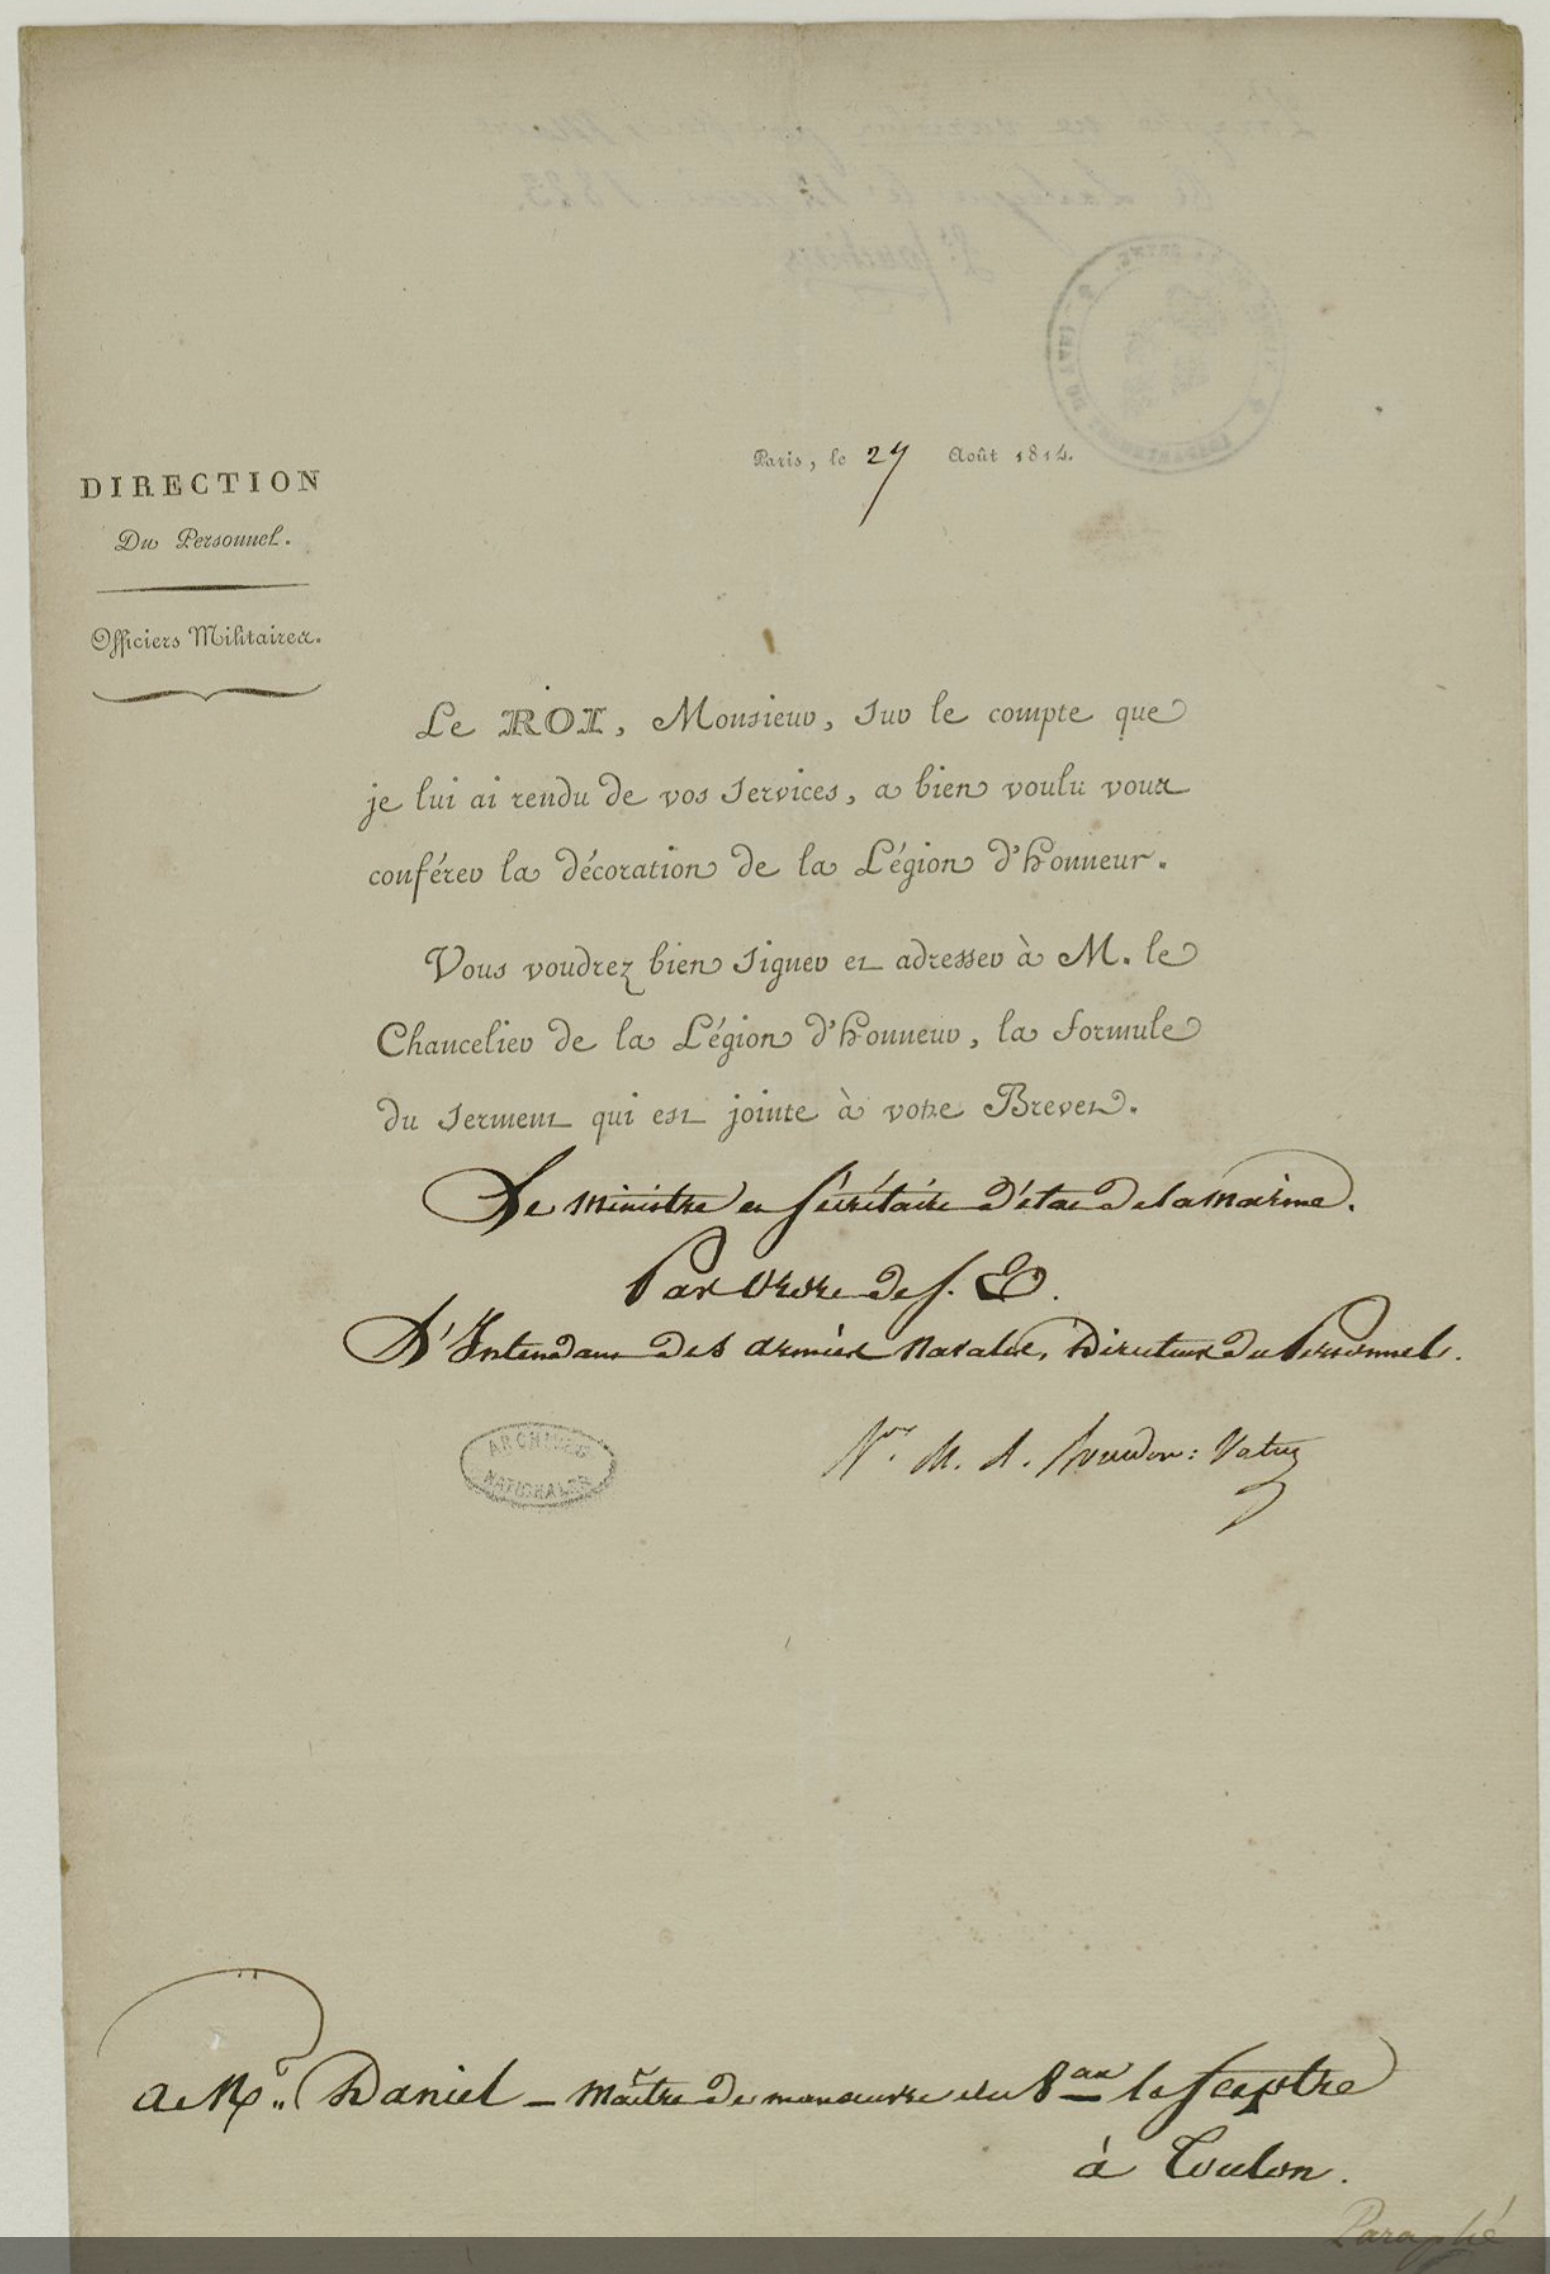 Paris, le 27 Août 1814.
DIRECTION
Du Personnel.
Officiers Militaires.
Le ROI, Monsieur, sur le compte que
je lui ai rendu de vos services, a bien voulu vous
conférer la décoration de la Légion d'honneur.
Vous voudrez bien signer et adresser à M. le
Chancelier de la Légion d'honneur, la formule
du serment qui est jointe à votre Brevet.
Le Ministre et Sécrétaire d'état de la Marine.
Par Ordre de S. E.
L'Intendant des armées navales, Directeur du Personnel.
ARCHIVES
NATIONALES
A Mr. Daniel - Maître de manoeuvre du Vau le Sceptre
à Toulon.
Paraphé